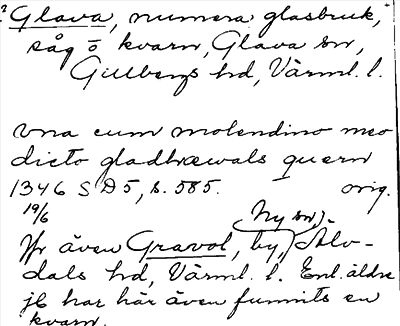 ? Glava, numera glasbruk,
såg o kvarn, Glava sn,
Gillbergs hd, Värml. l.
vna cum molendino meo
dicto gladhræwals quern
1346 SD 5, s. 585. orig.
19/6
Ny sn,
Jfr även Gravol, by, Älv-
dals hd, Värml. l. Enl. äldre
jb har här även funnits en
kvarn.